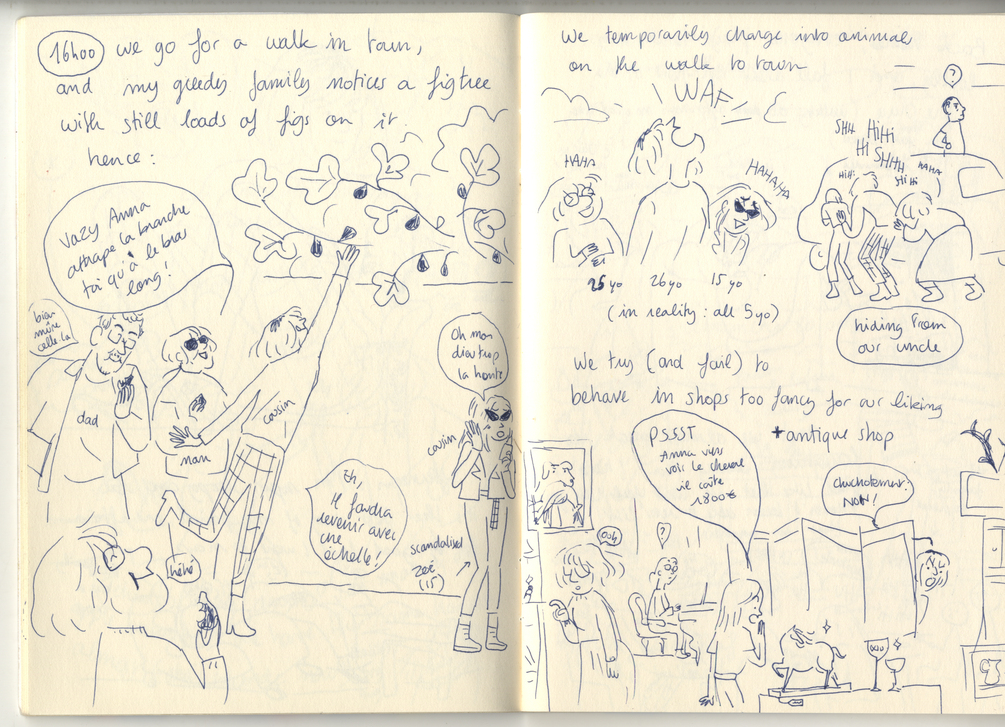 16h00 we go for a walk in town,
and my greedy family notices a figtree
with still loads of figs on it.
hence:
Vazy Anna
attrape la branche
toi qu'à le bras
long!
bien
mûre
celle la
dad
mam
cousin
Oh mon
dieu trop
la honte
cousin
Eh,
il faudra
revenir avec
une
échelle!
scandalised
Zoé
(15)
héhé
We temporarily change into animals
on the walk to town
WAF
HAHA
HAHAHA
25 yo 26 yo 15 yo
(in reality: all 5 yo)
?
SHH HiHi
Hi SHHH
HiHi
HAHA
hiding from
our uncle
We try (and fail) to
behave in shops too fancy for our liking
+ antique shop
PSSST
Anna viens
voir le cheval
il coûte
1800€
chuchotement:
NON!
ooh
?